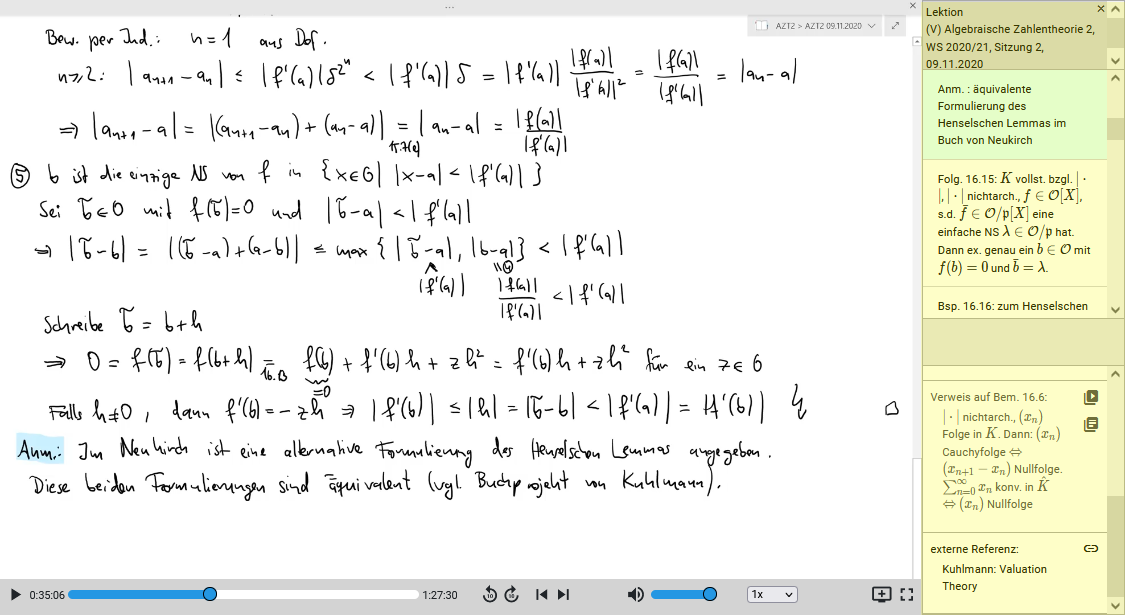 AZT2 > AZT2 09.11.2020
Bew. per Ind.: n=1 aus Def.
n≥2: |aₙ₊₁ - aₙ| ≤ |f'(a)|δ^{2ⁿ} < |f'(a)|δ = |f'(a)| |f(a)|/|f'(a)|² = |f(a)|/|f'(a)| = |aₙ - a|
⇒ |aₙ₊₁ - a| = |(aₙ₊₁ - aₙ) + (aₙ - a)| = |aₙ - a| = |f(a)|/|f'(a)|
⑤ b ist die einzige NS von f in {x∈O | |x-a| < |f'(a)| }
Sei b̃∈O mit f(b̃)=0 und |b̃-a| < |f'(a)|
⇒ |b̃-b| = |(b̃-a)+(a-b)| ≤ max{ |b̃-a|, |b-a|} < |f'(a)|
∧ || ④
|f'(a)| |f(a)|/|f'(a)| < |f'(a)|
Schreibe b̃ = b+h
⇒ 0 = f(b̃) = f(b+h) = f(b) + f'(b)h + zh² = f'(b)h + zh² für ein z∈O
16.13 =0
Falls h≠0, dann f'(b) = -zh ⇒ |f'(b)| ≤ |h| = |b̃-b| < |f'(a)| = |f'(b)| ↯ □
Anm.: Im Neukirch ist eine alternative Formulierung des Henselschen Lemmas angegeben.
Diese beiden Formulierungen sind äquivalent (vgl. Buchprojekt von Kuhlmann).
0:35:06
1:27:30
10
10
1x
Lektion
(V) Algebraische Zahlentheorie 2,
WS 2020/21, Sitzung 2,
09.11.2020
Anm. : äquivalente
Formulierung des
Henselschen Lemmas im
Buch von Neukirch
Folg. 16.15: K vollst. bzgl. | ·
|, | · | nichtarch., f ∈ O[X],
s.d. f̄ ∈ O/p[X] eine
einfache NS λ ∈ O/p hat.
Dann ex. genau ein b ∈ O mit
f(b) = 0 und b̄ = λ.
Bsp. 16.16: zum Henselschen
Verweis auf Bem. 16.6:
| · | nichtarch., (xₙ)
Folge in K. Dann: (xₙ)
Cauchyfolge ⇔
(xₙ₊₁ − xₙ) Nullfolge.
∑_{n=0}^∞ xₙ konv. in K̂
⇔ (xₙ) Nullfolge
externe Referenz:
Kuhlmann: Valuation
Theory